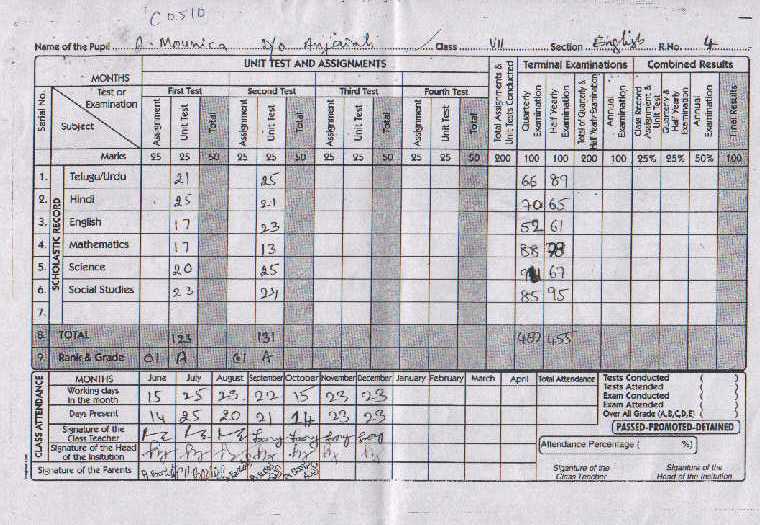 C0510
Name of the Pupil A. Mounica D/o Anjaiah Class VII Section English R.No. 4
UNIT TEST AND ASSIGNMENTS Terminal Examinations Combined Results
MONTHS
Serial No. Test or Examination Subject First Test Second Test Third Test Fourth Test
Assignment Unit Test Total Assignment Unit Test Total Assignment Unit Test Total Assignment Unit Test Total Total Assignments & Unit Tests Conducted Quarterly Examination Half Yearly Examination Total of Quarterly & Half Yearly Examination Annual Examination Class Record Assignment & Unit Test Quarterly & Half Yearly Examination Annual Examination Final Results
Marks 25 25 50 25 25 50 25 25 50 25 25 50 200 100 100 200 100 25% 25% 50% 100
SCHOLASTIC RECORD
1. Telugu/Urdu 21 25 66 89
2. Hindi 25 21 70 65
3. English 17 23 52 61
4. Mathematics 17 13 88 78
5. Science 20 25 67
6. Social Studies 23 24 85 95
7.
8. TOTAL 123 131 455
9. Rank & Grade 01 A 01 A
CLASS ATTENDANCE
MONTHS June July August September October November December January February March April Total Attendance
Working days in the month 15 25 23 22 15 23 23
Days Present 14 25 20 21 14 23 23
Signature of the Class Teacher
Signature of the Head of the Insitution
Signature of the Parents
Tests Conducted ( )
Tests Attended ( )
Exam Conducted ( )
Exam Attended ( )
Over All Grade (A,B,C,D,E) ( )
PASSED-PROMOTED-DETAINED
Attendance Percentage ( %)
Signature of the Class Teacher Signature of the Head of the Insitution